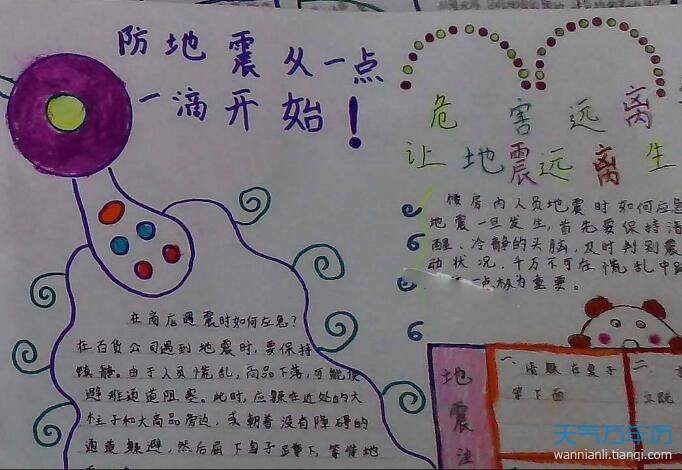 防地震从一点
一滴开始！
危害远离
让地震远离生
楼房内人员地震时如何应急
地震一旦发生，首先要保持清
醒、冷静的头脑，及时判别震
动状况，千万不可在慌乱中跳
一点极为重要。
在商店遇震时如何应急？
在百货公司遇到地震时，要保持
镇静。由于人员慌乱，商品下落，可能使
避难通道阻塞。此时，应躲在近处的大
柱子和大商品旁边，或朝着没有障碍的
通道躲避，然后屈下身子蹲下，等待地
地震注
一、
躲在桌子
下面
二
天气万年历
wannianli.tianqi.com